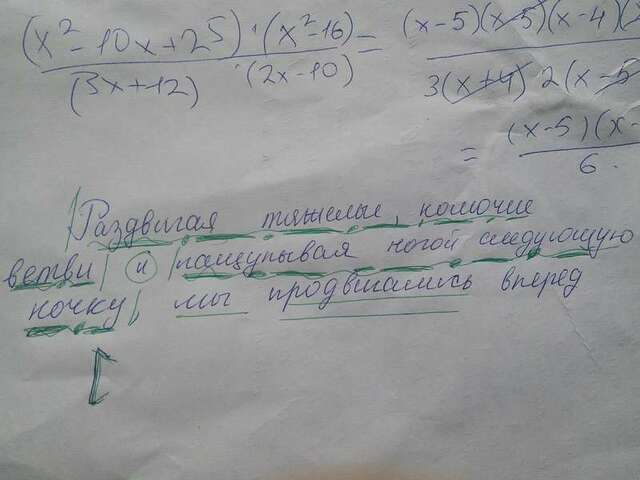 (x² - 10x + 25) · (x² - 16) = (x - 5)(x - 5)(x - 4)(
(3x + 12) · (2x - 10) 3(x + 4) 2(x - 5
= (x - 5)(x -
6
Раздвигая тяжелые, колючие
ветви и нащупывая ногой следующую
кочку, мы продвигались вперед